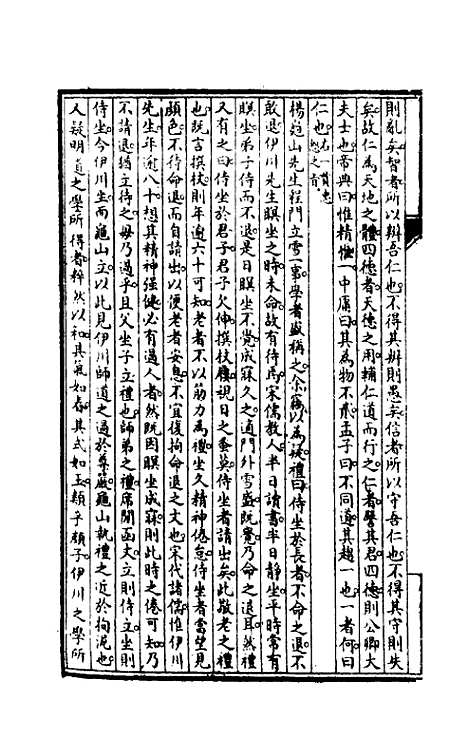 則亂矣智者所以辨吾仁也不得其辨則愚矣信者所以守吾仁也不得其守則失
矣故仁為天地之體四德者天德之用輔仁道而行之仁者譬其君四德則公卿大
夫士也帝典曰惟精惟一中庸曰其為物不貳孟子曰不同道其趨一也一者何曰
仁也
楊龜山先生程門立雪一事學者盛稱之余竊以為疑禮曰侍坐於長者不命之退不
敢退伊川先生瞑坐之時未命故有待焉宋儒教人半日讀書半日靜坐平時常有
瞑坐弟子侍而不退是日瞑坐不覺成寐久之適門外雪盛既覺乃命之退耳然禮
又有之曰侍坐於君子君子欠伸撰杖屨視日之蚤莫侍坐者請出矣此敬老之禮
也既言撰杖則年逾六十可知老者不以筋力為禮坐久精神倦怠侍坐者當望見
顏色不待命退而自請出以便老者安息不宜復拘命退之文也宋代諸儒惟伊川
先生年逾八十想其精神強健必有過人者然既因瞑坐成寐則此時之倦可知乃
不請退猶立待之毋乃過乎且父坐子立禮也師弟之禮席間函丈立則侍立坐則
侍坐今伊川坐而龜山立以此見伊川師道之過於嚴龜山執禮之近於拘泥也
人疑明道之學所得者粹然以和其氣如春其式如玉類乎顏子伊川之學所